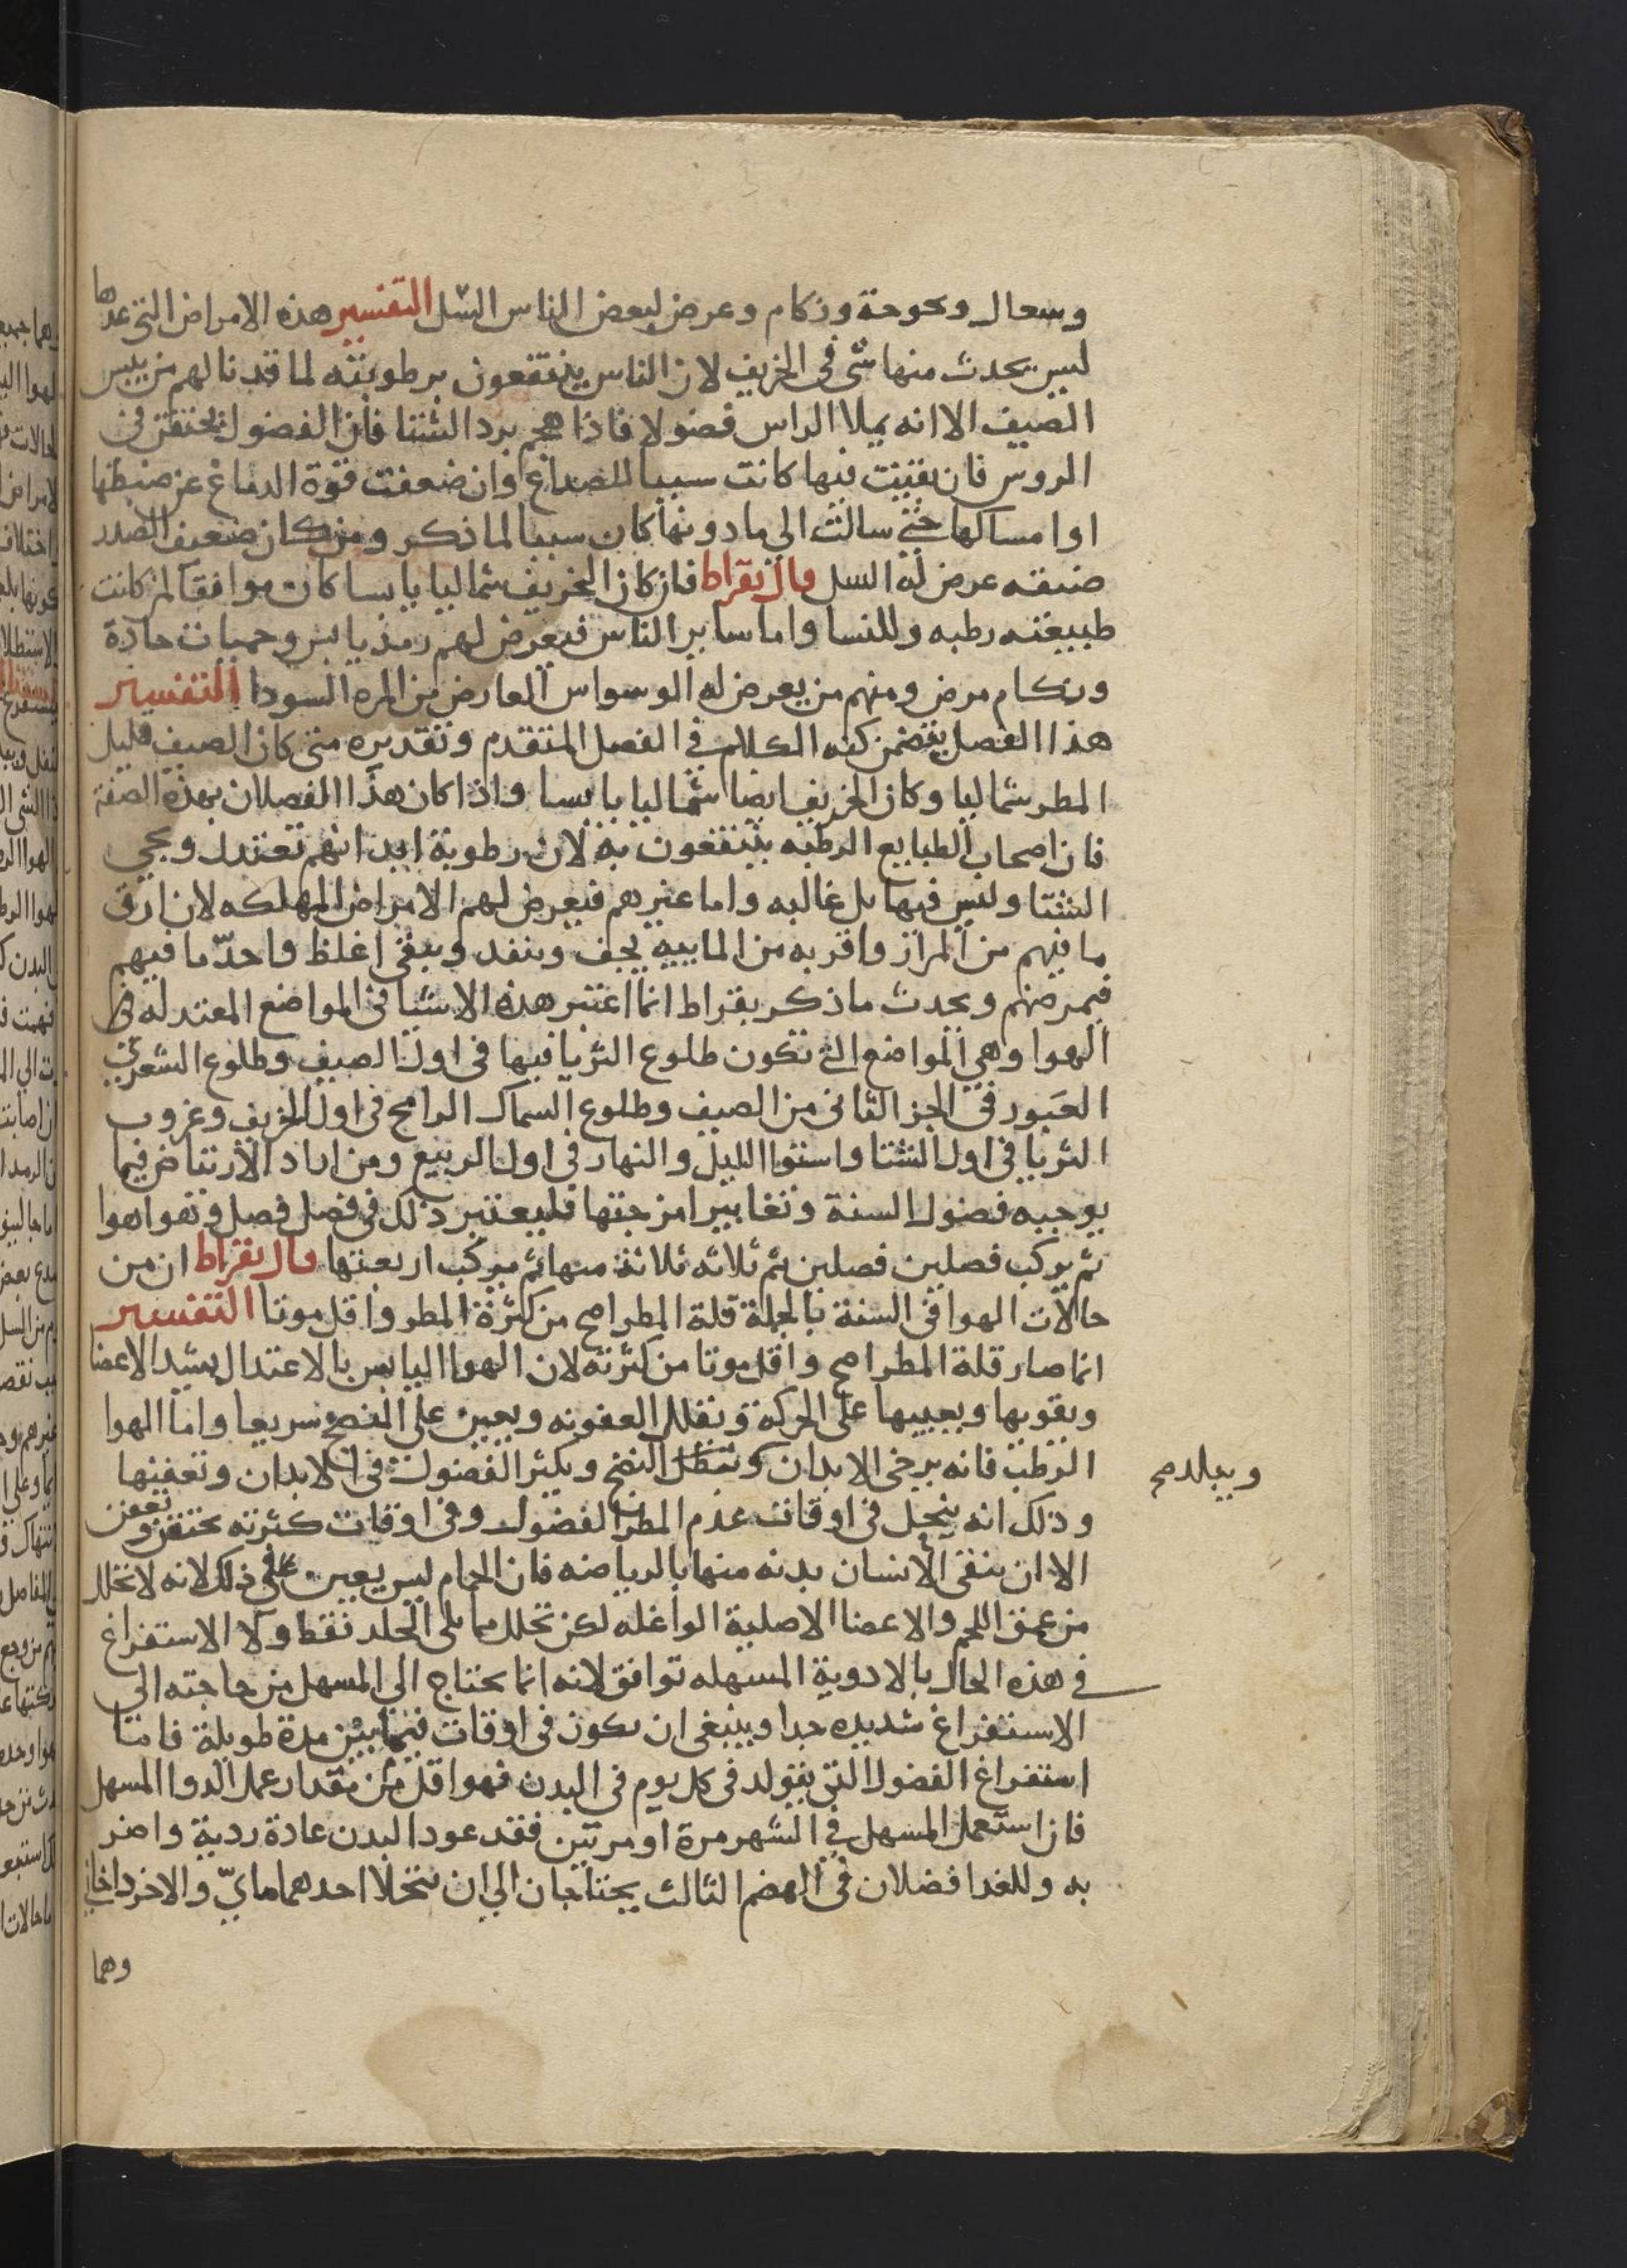 وسعال وبحوحة وزكام وعرض لبعض الناس السل التفسير هذه الامراض التي عدها
ليس يحدث منها شى فى الخريف لان الناس ينتفعون برطوبته لما قد نالهم من يبس
الصيف الا انه يملا الراس فضولا فاذا هجم برد الشتا فان الفضول تحتقن فى
الروس فان بقيت فيها كانت سببا للصداع وان ضعفت قوة الدماغ عن ضبطها
او امساكها حتى سالت الى ما دونها كان سببا لما ذكر ومن كان ضعيف الصدر
ضيقه عرض له السل قال بقراط فان كان الخريف شماليا يابسا كان موافقا لمن كانت
طبيعته رطبه وللنسا واما ساير الناس فيعرض لهم رمد يابس وحميات حادة
وزكام مرض ومنهم من يعرض له الوسواس العارض من المره السودا التفسير
هذا الفصل يتضمن كنه الكلام في الفصل المتقدم وتقديره متى كان الصيف قليل
المطر شماليا وكان الخريف ايضا شماليا يابسا واذا كان هذا الفصلان بهذه الصفة
فان اصحاب الطبايع الرطبه ينتفعون به لان رطوبة ابدانهم تعتدل ويجي
الشتا وليس فيها بل غالبه واما غيرهم فيعرض لهم الامراض المهلكه لان ارق
ما فيهم من المرار واقربه من الماييه يجف وينفد ويبقى اغلظ واحد ما فيهم
فيمرضهم ويحدث ما ذكر بقراط انما اعتبر هذه الاشيا فى المواضع المعتدله فى
الهوا وهي المواضع التي تكون طلوع الثريا فيها فى اول الصيف وطلوع الشعرى
العبور فى الجز الثانى من الصيف وطلوع السماك الرامح فى اول الخريف وغروب
الثريا فى اول الشتا واستوا الليل والنهار فى اول الربيع ومن اراد الارتياض فيما
يوجبه فصول السنة وتغايير امزجتها فليعتبر ذلك فى فصل فصل وهوا هوا
ثم يركب فصلين فصلين ثم ثلاثه ثلاثة منها ثم يركب اربعتها قال بقراط ان من
حالات الهوا فى السنة بالجملة قلة المطر اصح من كثرة المطر واقل موتا التفسير
انما صار قلة المطر اصح واقل موتا من كثرته لان الهوا اليابس بالاعتدال يشد الاعضا
ويقويها ويعينها على الحركة ويقلل العفونه ويعين على النضج سريعا واما الهوا
الرطب فانه يرخى الابدان ويبطل النضج ويكثر الفضول فى الابدان وتعفنها
ويبلد صح
وذلك انه ينحل فى اوقات عدم المطر الفضول وفى اوقات كثرته تحتقن وتعفن
الا ان ينقى الانسان بدنه منها بالرياضه فان الحمام ليس يعين على ذلك لانه لا تحلل
من عمق اللحم والاعضا الاصلية الواغله لكن تحلل مما يلى الجلد فقط ولا الاستفراغ
في هذه الحال بالادوية المسهله توافق لانه انما يحتاج الى المسهل من حاجته الى
الاستفراغ شديده جدا وينبغى ان يكون فى اوقات فيما بينهن مدة طويلة فاما
استفراغ الفضول التى يتولد فى كل يوم فى البدن فهو اقل من مقدار عمل الدوا المسهل
فان استعمل المسهل فى الشهر مرة او مرتين فقد عود البدن عادة ردية واضر
به وللغدا فضلان فى الهضم الثالث يحتاجان الى ان يتحللا احدهما مايى والاخر دخانى
وهما